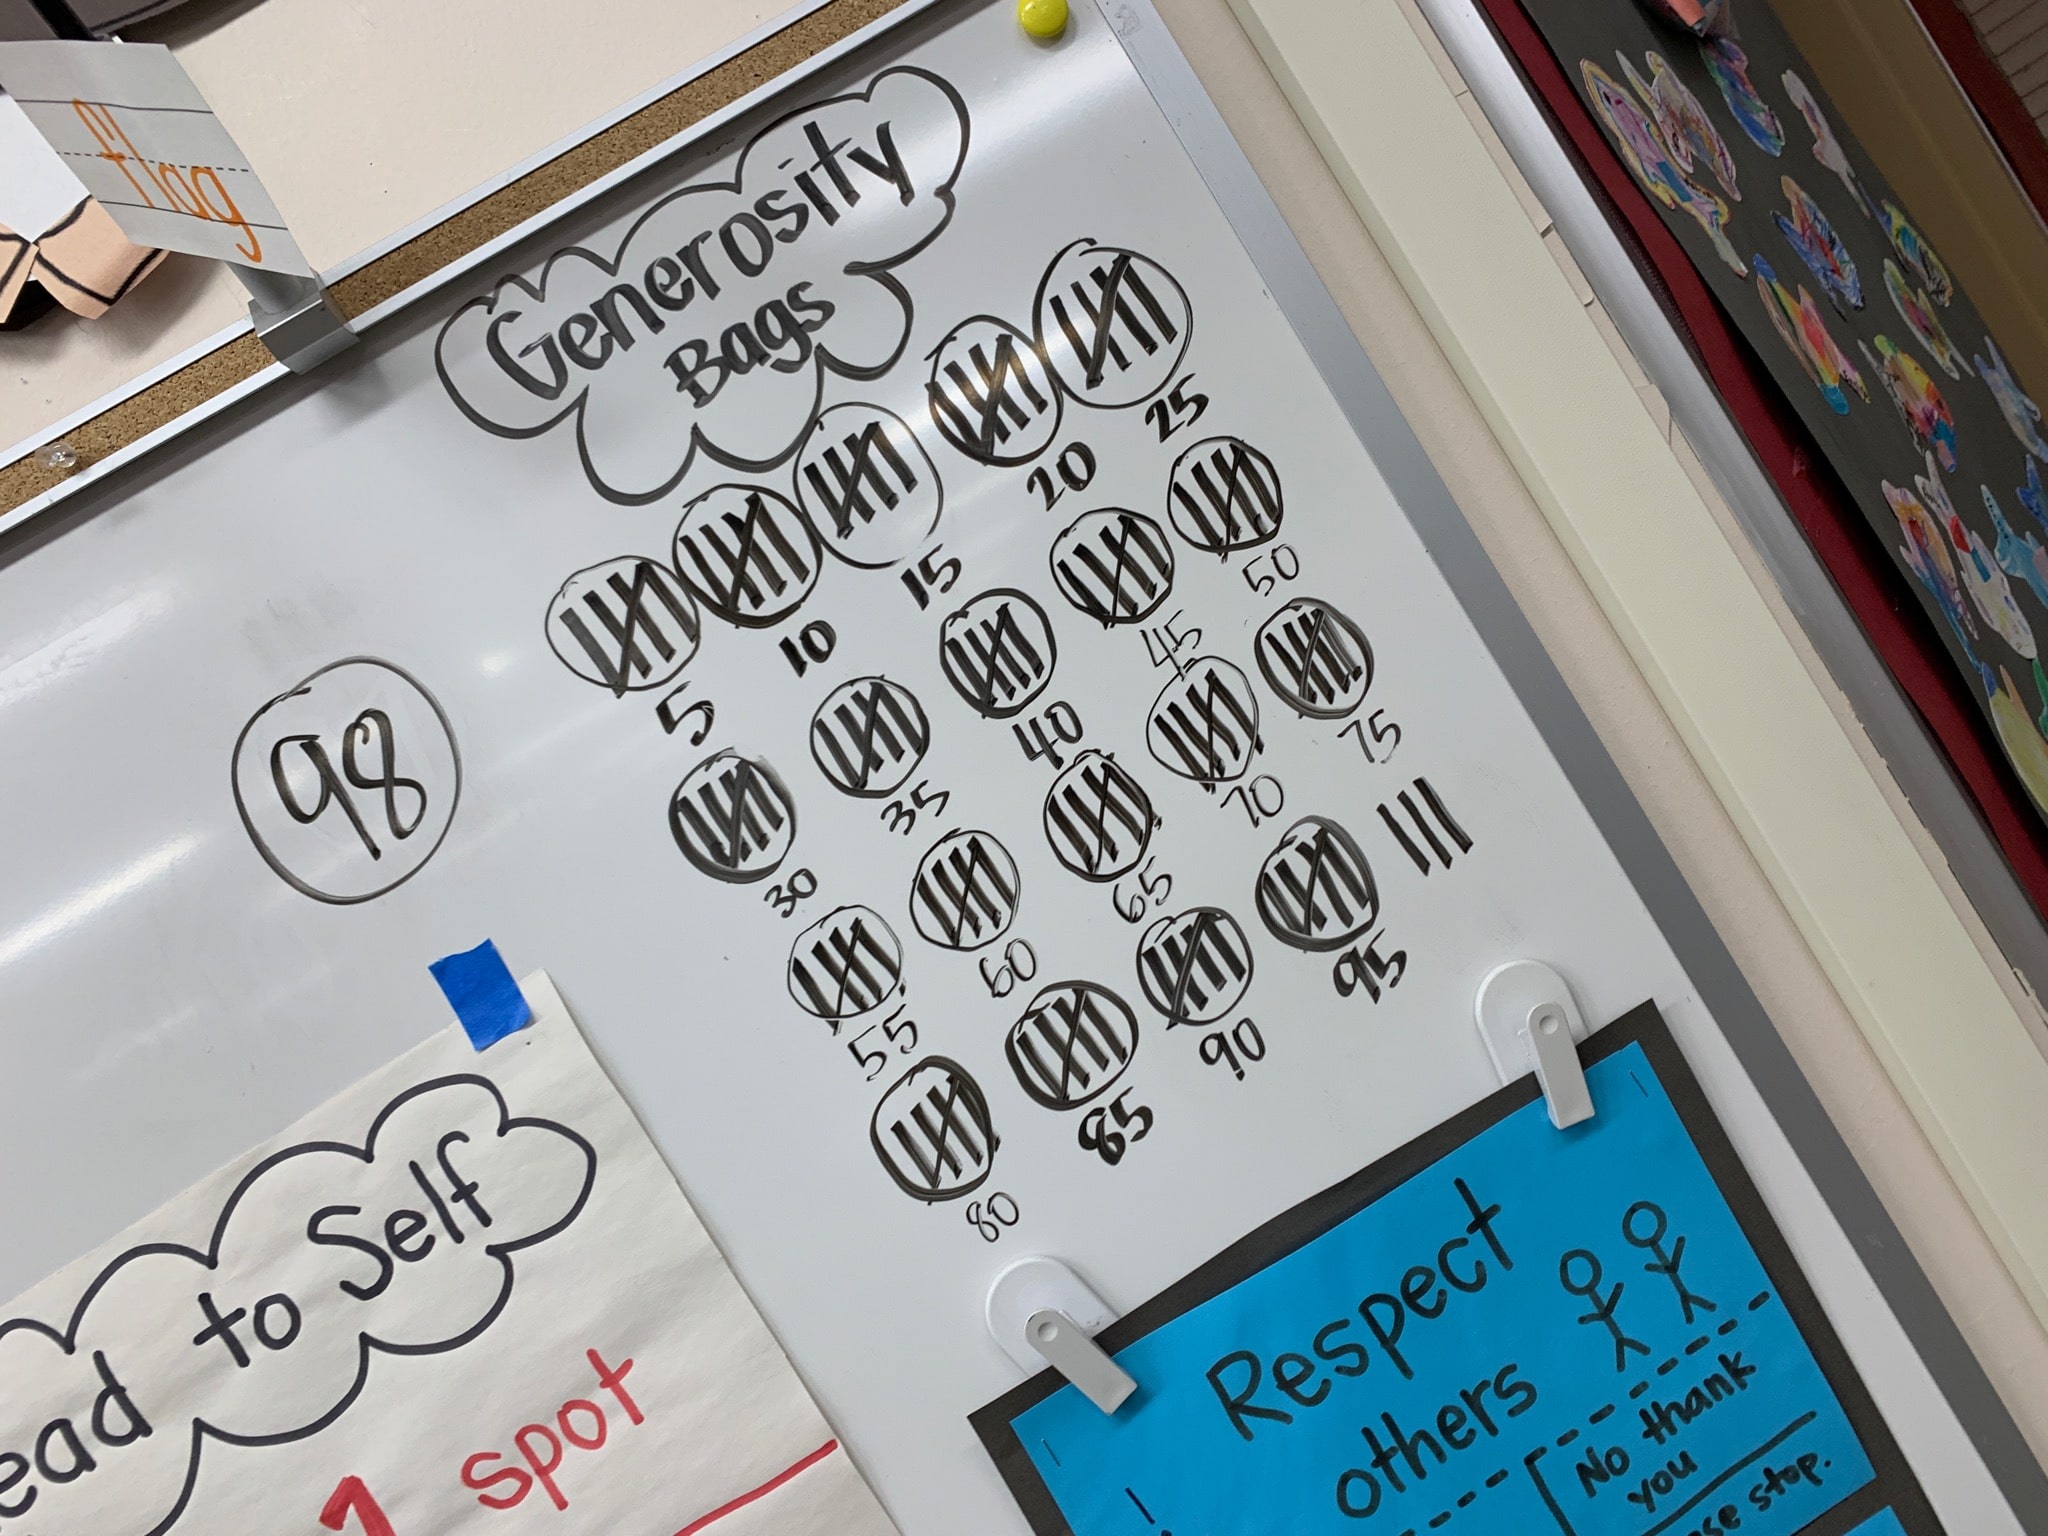 flag
Generosity
Bags
5 10 15 20 25
30 35 40 45 50
55 60 65 70 75
80 85 90 95
98
to Self
1 spot
Respect
others
No thank
you
stop.